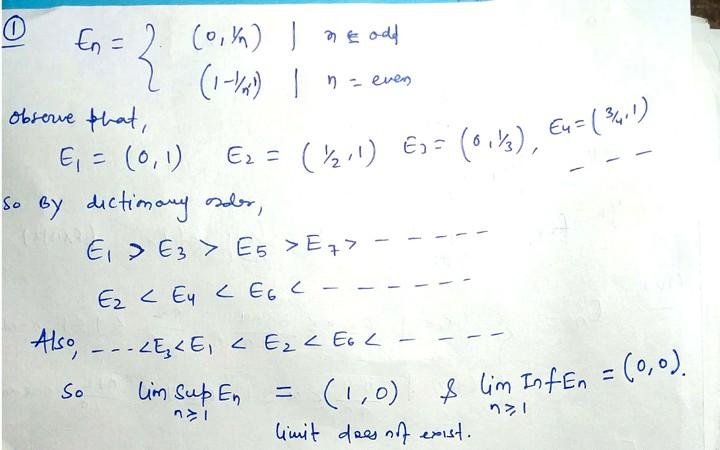 ① En = { (0, 1/n) | n ∈ odd
(1-1/n, 1) | n = even
Observe that,
E1 = (0, 1) E2 = (1/2, 1) E3 = (0, 1/3), E4 = (3/4, 1) - - -
So By dictionary order,
E1 > E3 > E5 > E7 > - - - - - -
E2 < E4 < E6 < - - - - - - -
Also, - - - < E3 < E1 < E2 < E6 < - - - -
So lim Sup En = (1, 0) & lim Inf En = (0, 0).
n≥1 n≥1
limit does not exist.